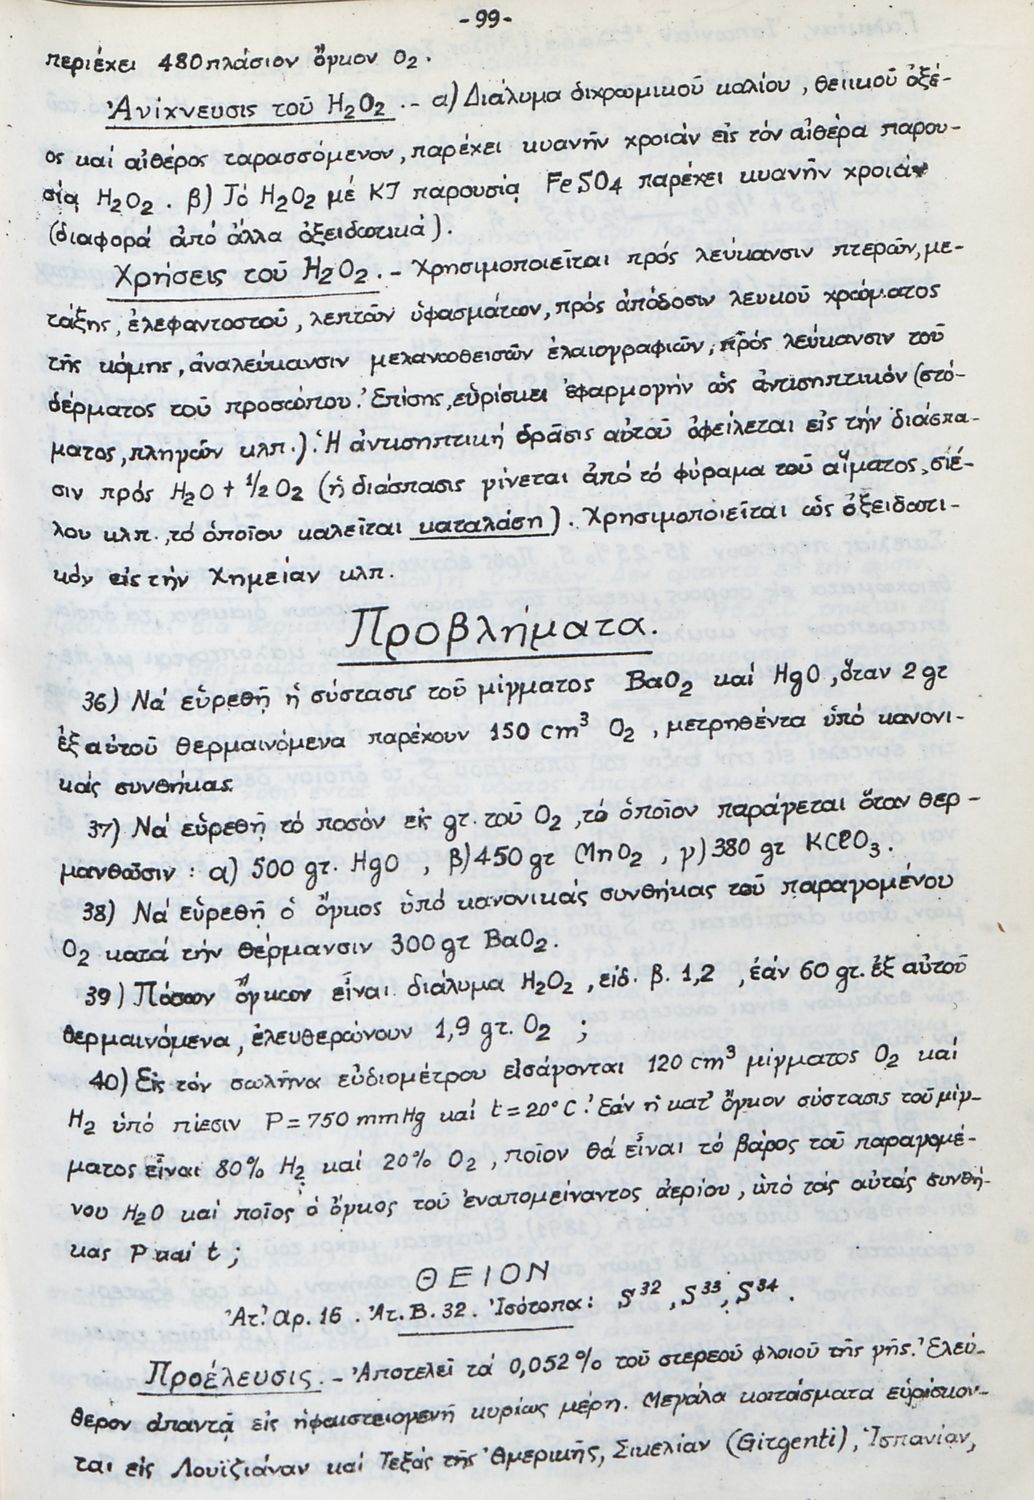 -99-
περιέχει 480πλάσιον ὄγκον O₂.
Ἀνίχνευσις τοῦ H₂O₂ .- α) Διάλυμα διχρωμικοῦ καλίου, θειικοῦ ὀξέ-
ος καί αἰθέρος ταρασσόμενον, παρέχει κυανῆν χροιάν εἰς τόν αἰθέρα παρου-
σίᾳ H₂O₂. β) Τό H₂O₂ μέ KJ παρουσίᾳ FeSO4 παρέχει κυανῆν χροιάν
(διαφορά ἀπό ἄλλα ὀξειδωτικά).
Χρήσεις τοῦ H₂O₂.- Χρησιμοποιεῖται πρός λεύκανσιν πτερῶν, με-
τάξης, ἐλεφαντοστοῦ, λεπτῶν ὑφασμάτων, πρός ἀπόδοσιν λευκοῦ χρώματος
τῆς κόμης, ἀναλεύκανσιν μελανωθεισῶν ἐλαιογραφιῶν, πρός λεύκανσιν τοῦ
δέρματος τοῦ προσώπου. Ἐπίσης, εὑρίσκει ἐφαρμογήν ὡς ἀντισηπτικόν (στό-
ματος, πληγῶν κλπ.). Ἡ ἀντισηπτική δρᾶσις αὐτοῦ ὀφείλεται εἰς τήν διάσπα-
σιν πρός H₂O + ½ O₂ (ἡ διάσπασις γίνεται ἀπό τό φύραμα τοῦ αἵματος, σιέ-
λου κλπ., τό ὁποῖον καλεῖται καταλάση). Χρησιμοποιεῖται ὡς ὀξειδωτι-
κόν εἰς τήν Χημείαν κλπ.
Προβλήματα.
36) Νά εὑρεθῇ ἡ σύστασις τοῦ μίγματος BaO₂ καί HgO, ὅταν 2 gr
ἐξ αὐτοῦ θερμαινόμενα παρέχουν 150 cm³ O₂, μετρηθέντα ὑπό κανονι-
κάς συνθήκας.
37) Νά εὑρεθῇ τό ποσόν εἰς gr. τοῦ O₂, τό ὁποῖον παράγεται ὅταν θερ-
μανθῶσιν : α) 500 gr. HgO , β) 450 gr MnO₂ , γ) 380 gr KClO₃.
38) Νά εὑρεθῇ ὁ ὄγκος ὑπό κανονικάς συνθήκας τοῦ παραγομένου
O₂ κατά τήν θέρμανσιν 300 gr BaO₂.
39) Πόσων ὄγκων εἶναι διάλυμα H₂O₂, εἰδ. β. 1,2 , ἐάν 60 gr. ἐξ αὐτοῦ
θερμαινόμενα, ἐλευθερώνουν 1,9 gr. O₂ ;
40) Εἰς τόν σωλῆνα εὐδιομέτρου εἰσάγονται 120 cm³ μίγματος O₂ καί
H₂ ὑπό πίεσιν P = 750 mm Hg καί t = 20°C. Ἐάν ἡ κατ' ὄγκον σύστασις τοῦ μίγ-
ματος εἶναι 80% H₂ καί 20% O₂, ποῖον θά εἶναι τό βάρος τοῦ παραγομέ-
νου H₂O καί ποῖος ὁ ὄγκος τοῦ ἐναπομείναντος ἀερίου, ὑπό τάς αὐτάς συνθή-
κας P καί t ;
ΘΕΙΟΝ
Ἀτ. Ἀρ. 16 . Ἀτ. Β. 32. Ἰσότοπα: S³², S³³, S³⁴.
Προέλευσις.- Ἀποτελεῖ τά 0,052% τοῦ στερεοῦ φλοιοῦ τῆς γῆς. Ἐλεύ-
θερον ἀπαντᾷ εἰς ἡφαιστειογενῆ κυρίως μέρη. Μεγάλα κοιτάσματα εὑρίσκον-
ται εἰς Λουϊζιάναν καί Τεξάς τῆς Ἀμερικῆς, Σικελίαν (Girgenti), Ἰσπανίαν,